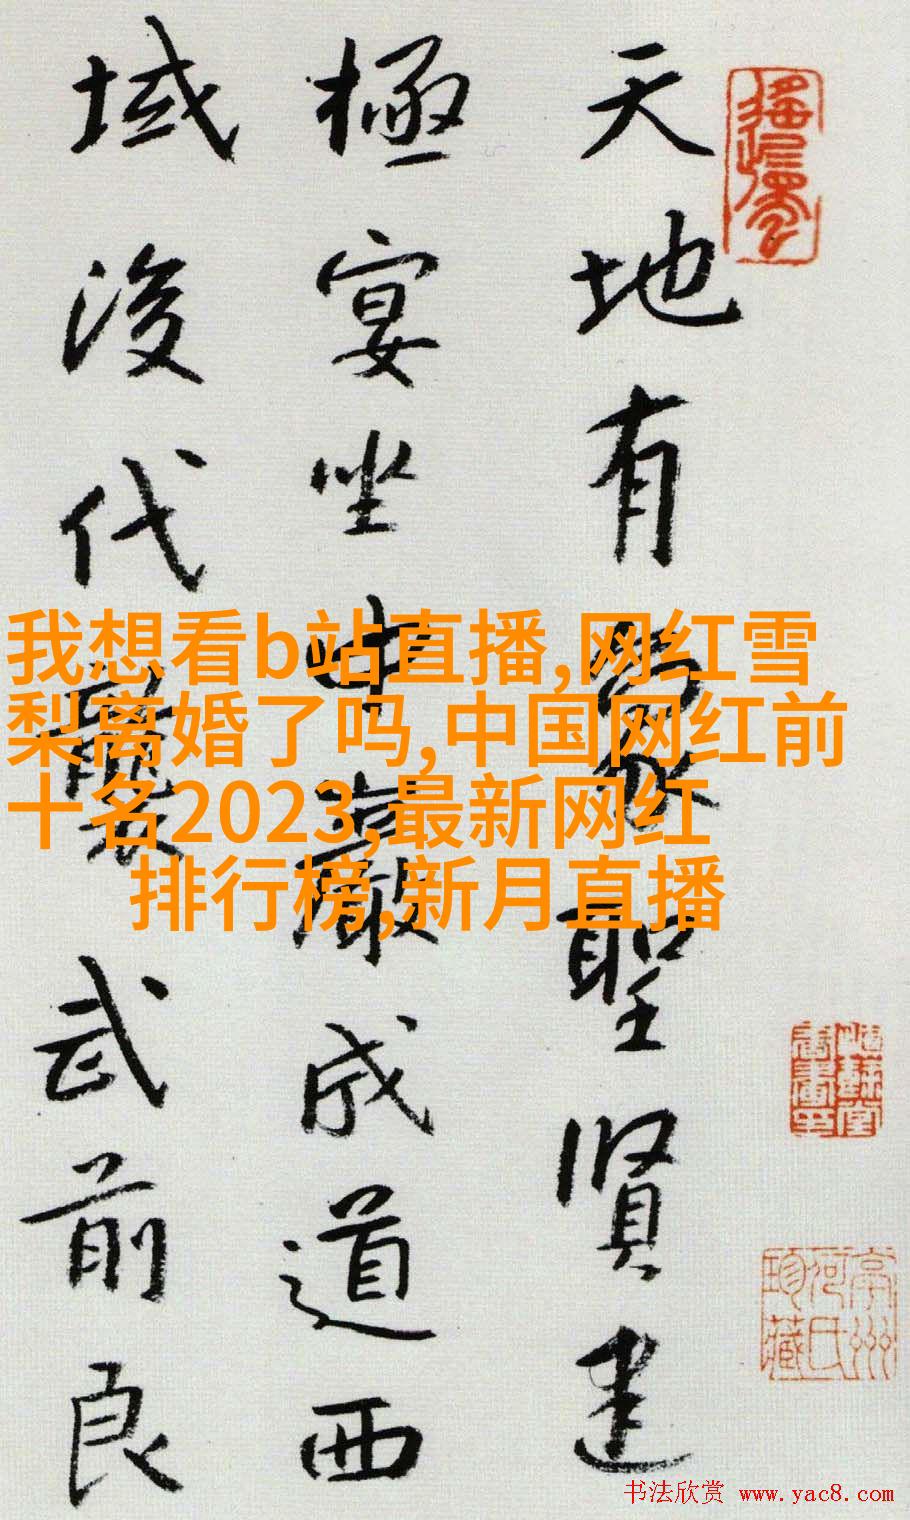 天地有象聖賢建
極宴坐中巖成道西
域後代襲武前良
我想看b站直播,网红雪
梨离婚了吗,中国网红前
十名2023,最新网红
排行榜,新月直播
书法欣赏 www.yac8.com